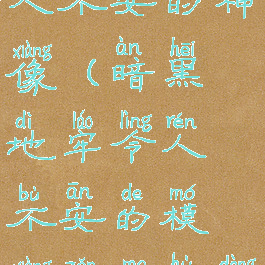 人不安的神
xiàng àn hēi
像（暗黑
dì láo lìng rén
地牢令人
bù ān de mó
不安的模